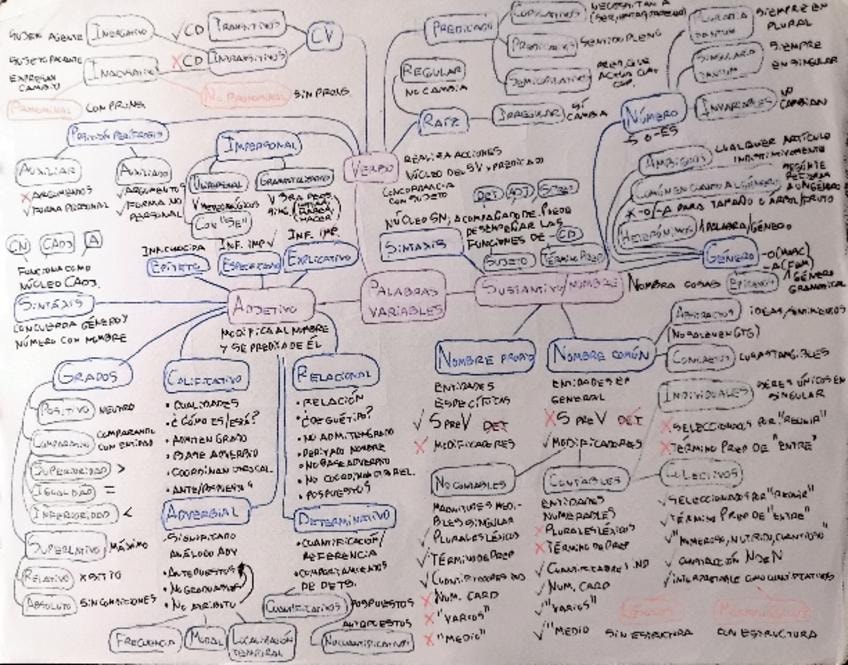 SUJETO AGENTE
INERGATIVO
√CD
TRANSITIVOS
CV
SUJETO PACIENTE
EXPRESAN
CAMBIO
INACUSATIVO
X CD
INTRANSITIVOS
PRONOMINAL
CON PRONS.
NO PRONOMINAL
SIN PRONS.
PREDICADO
COPULATIVOS
PREDICATIVOS
SENTIDO PLENO
SEMICOPULATIVOS
REGULAR
NO CAMBIA
RAÍZ
IRREGULAR
SÍ
CAMBIA
PLURALIA
TANTUM
SIEMPRE EN
PLURAL
SINGULARIA
TANTUM
SIEMPRE
EN SINGULAR
NÚMERO
S O -ES
INVARIABLES
NO
CAMBIAN
AMBIGUOS
CUALQUIER ARTÍCULO
INDISTINTAMENTE
COMÚN EN CUANTO AL GÉNERO
X -O/-A PARA TAMAÑO O ÁRBOL/FRUTO
HETERÓNIMOS
1 PALABRA/GÉNERO
GÉNERO
-O (MASC)
-A (FEM)
EPICENOS
1 GÉNERO
GRAMATICAL
AUXILIAR
X ARGUMENTOS
√ FORMA PERSONAL
AUXILIADO
√ ARGUMENTOS
√ FORMA NO
PERSONAL
IMPERSONAL
UNIPERSONAL
√ METEOROLÓGICOS
CON "SE"
GRAMATICALIZADO
VERBO
REALIZA ACCIONES
NÚCLEO DEL SV Y PREDICADO
CONCORDANCIA
CON SUJETO
DET
ADJ
NÚCLEO SN, ACOMPAÑADO DE. PUEDE
DESEMPEÑAR LAS
FUNCIONES DE
CD
SINTAXIS
SUJETO
TÉRMINO PREP
CN
CADJ
A
FUNCIONA COMO
NÚCLEO CADJ.
SINTAXIS
CONCUERDA GÉNERO Y
NÚMERO CON NOMBRE
EPÍTETO
INF. IMP √
ESPECIFICATIVO
INF. IMP.
EXPLICATIVO
ADJETIVO
MODIFICA AL NOMBRE
Y SE PREDICA DE ÉL
PALABRAS
VARIABLES
SUSTANTIVO/NOMBRE
NOMBRA COSAS
GRADOS
POSITIVO
NEUTRO
COMPARATIVO
COMPARANDO
CON ENTIDAD
SUPERIORIDAD >
IGUALDAD =
INFERIORIDAD <
SUPERLATIVO
MÁXIMO
RELATIVO
ABSOLUTO
SIN CONDICIONES
CALIFICATIVO
• CUALIDADES
• ¿CÓMO ES/ESTÁ?
• ADMITEN GRADO
• BASE ADVERBIO
• COORDINAN
• ANTE/POSPUESTOS
ADVERBIAL
• SIGNIFICADO
ANÁLOGO ADV
• ANTEPUESTOS
• NO GRADUABLES
• NO ATRIBUTO
FRECUENCIA
MODAL
LOCALIZACIÓN
TEMPORAL
RELACIONAL
• RELACIÓN
• ¿DE QUÉ TIPO?
• NO ADMITE GRADO
• DERIVADO NOMBRE
• NO BASE ADVERBIO
• POSPUESTOS
DETERMINATIVO
• CUANTIFICACIÓN/
REFERENCIA
• COMPORTAMIENTOS
DE DETS.
CUANTIFICATIVOS
POSPUESTOS
ANTEPUESTOS
NO CUANTIFICATIVOS
NOMBRE PROPIO
ENTIDADES
ESPECÍFICAS
√ S PRE V DET
X MODIFICADORES
NOMBRE COMÚN
ENTIDADES EN
GENERAL
X S PRE V DET
√ MODIFICADORES
NO CONTABLES
√ PLURALES LÉXICOS
√ TÉRMINO DE PREP
√ CUANTIFICADORES IND
X NUM. CARD
X "VARIOS"
X "MEDIO"
CONTABLES
ENTIDADES
NUMERABLES
X PLURALES LÉXICOS
X TÉRMINO PREP
√ CUANTIFICADORES IND
√ NUM. CARD
√ "VARIOS"
√ "MEDIO
ABSTRACTOS
IDEAS/SENTIMIENTOS
CONCRETOS
COSAS TANGIBLES
INDIVIDUALES
SERES ÚNICOS EN
SINGULAR
X SELECCIONADOS POR "REUNIR"
X TÉRMINO PREP DE "ENTRE"
COLECTIVOS
√ SELECCIONADOS POR "REUNIR"
√ TÉRMINO PREP DE "ENTRE"
√ "NUMEROSO, NUTRIDO, CUANTIOSO"
√ INTERPRETABLE COMO CUANTIFICATIVOS
LÉXICOS
SIN ESTRUCTURA
CON ESTRUCTURA